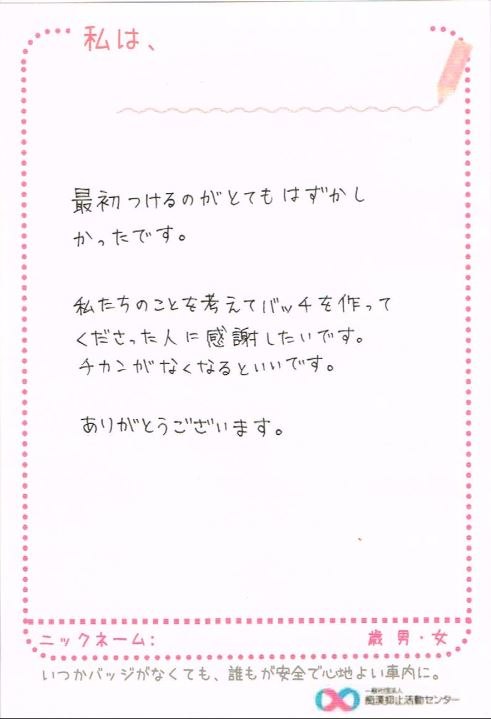 私は、
最初つけるのがとてもはずかし
かったです。
私たちのことを考えてバッチを作って
くださった人に感謝したいです。
チカンがなくなるといいです。
ありがとうございます。
ニックネーム: 歳 男・女
いつかバッジがなくても、誰もが安全で心地よい車内に。
一般社団法人
痴漢抑止活動センター